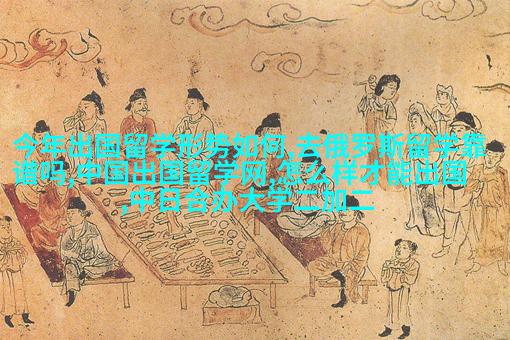 今年出国留学形势如何,去俄罗斯留学靠
谱吗,中国出国留学网,怎么样才能出国
,中日合办大学二加二